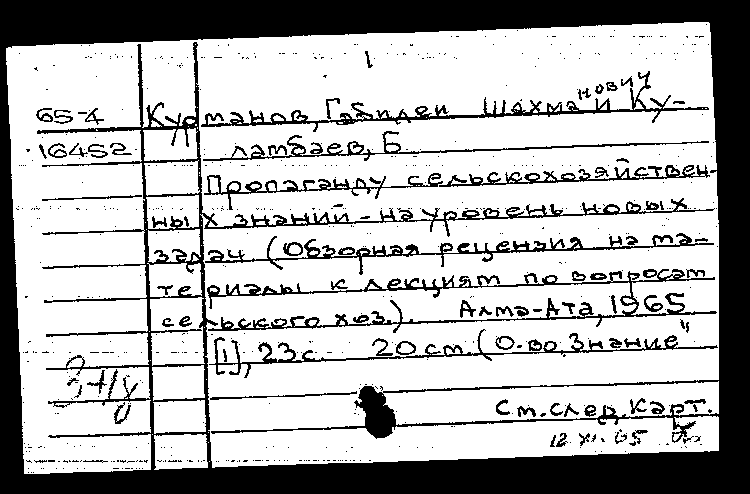 1
65-4 Курманов, Габиден Шахманович и Ку-
16452 ламбаев, Б
Пропаганду сельскохозяйствен-
ных знаний - на уровень новых
задач (Обзорная рецензия на ма-
териалы к лекциям по вопросам
сельского хоз.). Алма-Ата, 1965
[1], 23 с. 20 см. (О-во „Знание"
См. след. карт.
12 XI. 65